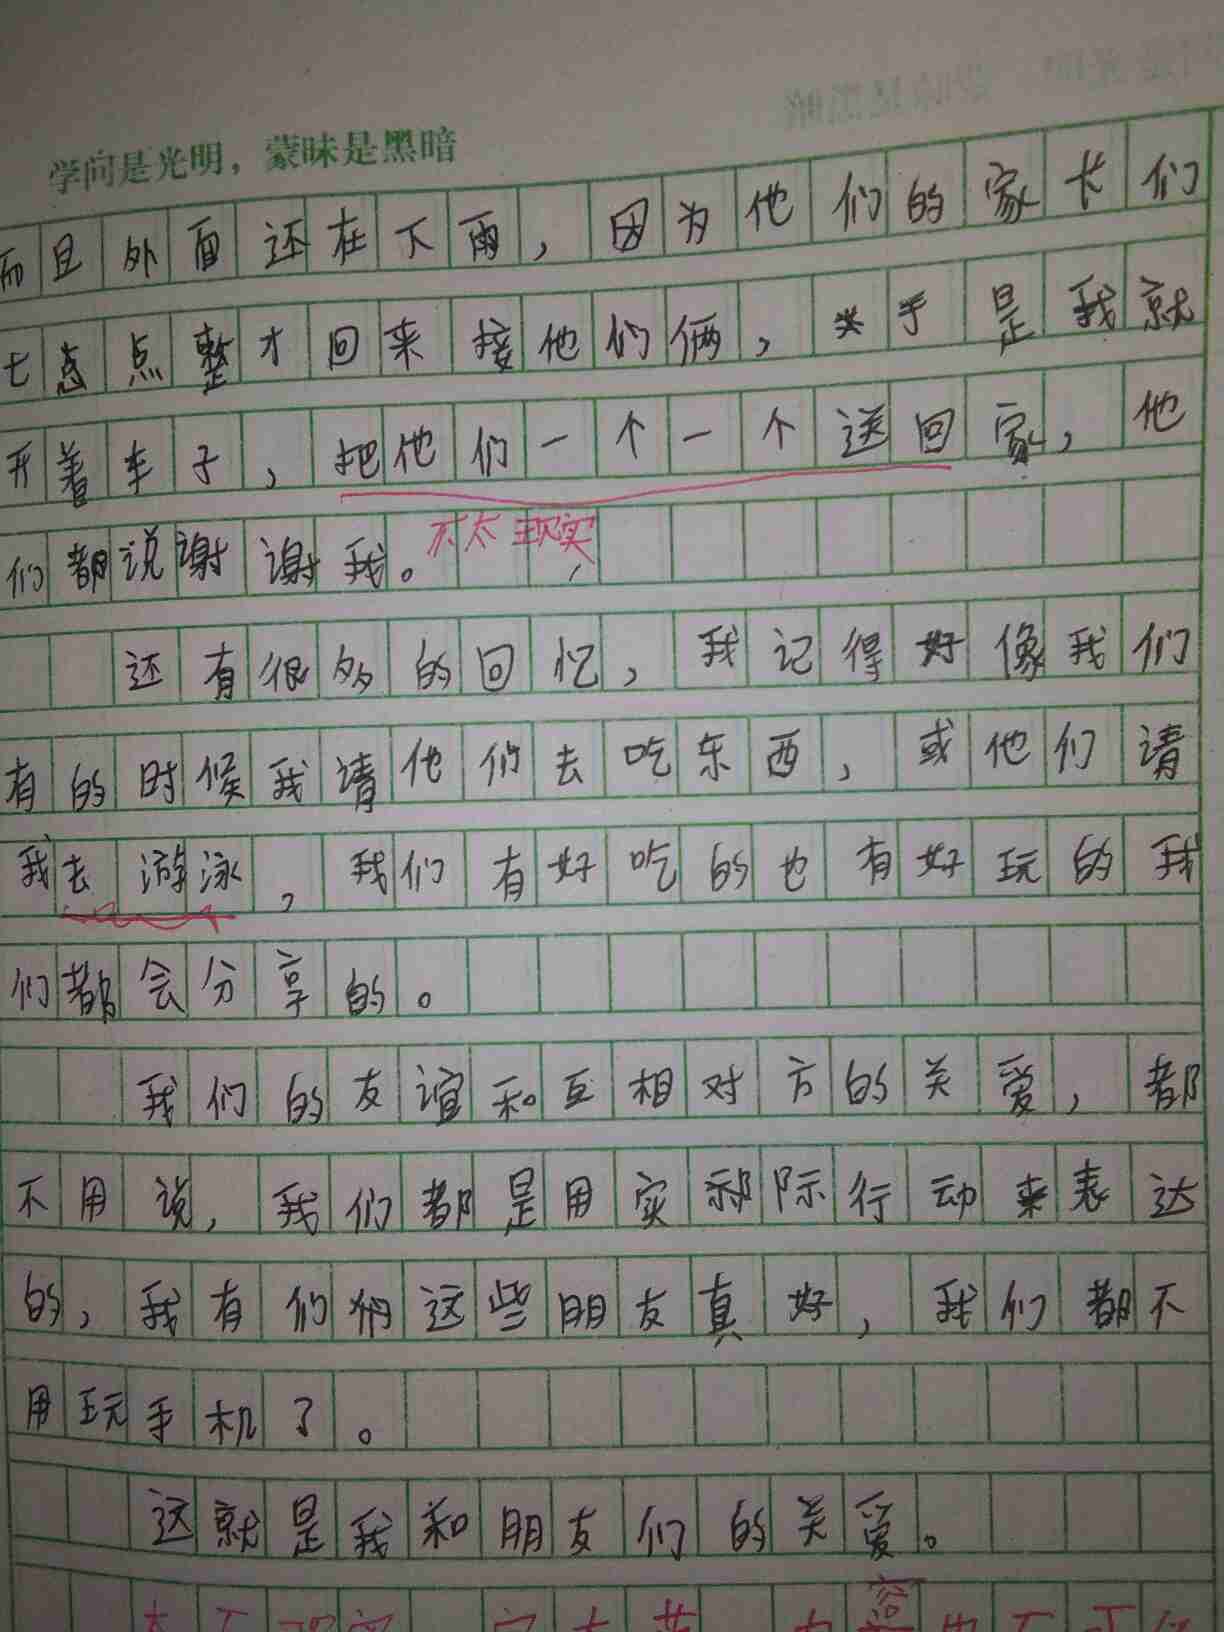 学问是光明，蒙昧是黑暗
而且外面还在下雨，因为他们的家长们
七点整才回来接他们俩，于是我就
开着车子，把他们一个一个送回家，他
们都说谢谢我。
不太现实
还有很多的回忆，我记得好像我们
有的时候我请他们去吃东西，或他们请
我去游泳，我们有好吃的也有好玩的我
们都会分享的。
我们的友谊和互相对方的关爱，都
不用说，我们都是用实际行动来表达
的，我有们这些朋友真好，我们都不
用玩手机了。
这就是我和朋友们的关爱。